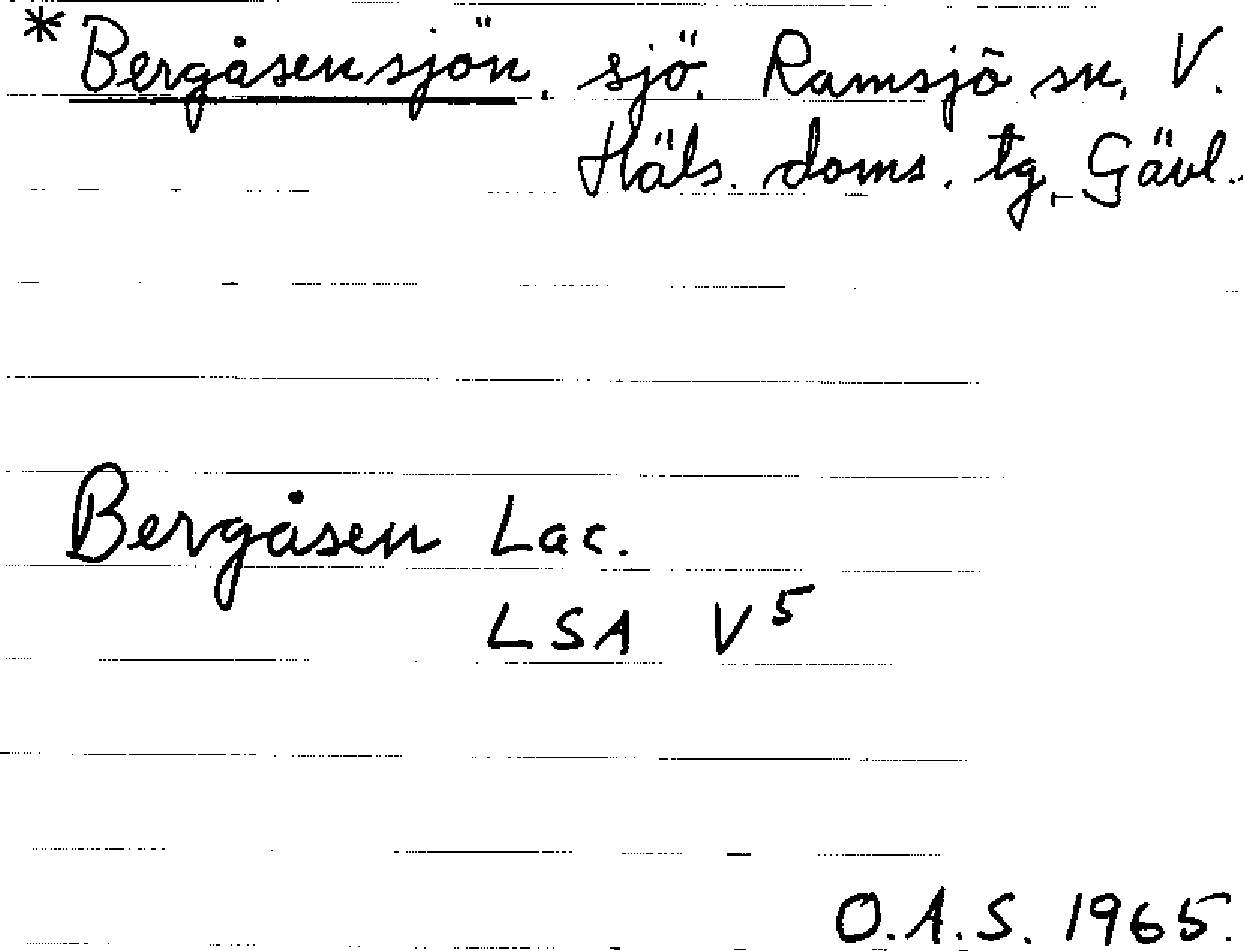 * Bergåsensjön. sjö. Ramsjö sn. V.
Häls. doms. tg, Gävl.
Bergåsen Lac.
LSA V5
O.A.S. 1965.